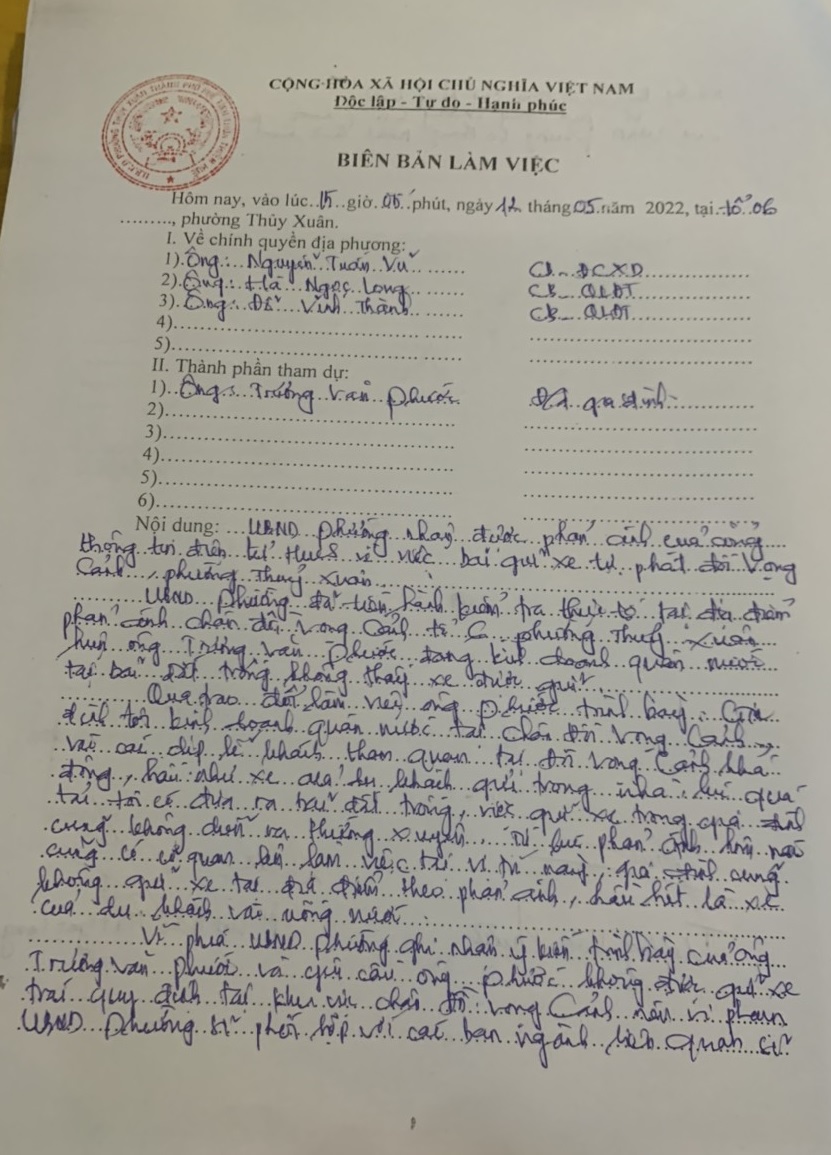 CỘNG HÒA XÃ HỘI CHỦ NGHĨA VIỆT NAM
Độc lập - Tự do - Hạnh phúc
BIÊN BẢN LÀM VIỆC
Hôm nay, vào lúc 15 giờ 05 phút, ngày 12 tháng 05 năm 2022, tại tổ 06
........., phường Thủy Xuân.
I. Về chính quyền địa phương:
1) Ông: Nguyễn Tuấn Vũ ...... CC ĐCXD
2) Ông: Hà Ngọc Long ...... CB QLĐT
3) Ông: Đỗ Vĩnh Thành ...... CB QLĐT
4)
5)
II. Thành phần tham dự:
1) Ông: Trương Văn Phước Đd gia đình
2)
3)
4)
5)
6)
Nội dung: UBND phường nhận được phản ánh của cổng
thông tin điện tử Hues về việc bãi giữ xe tự phát đồi Vọng
Cảnh, phường Thủy Xuân
UBND phường đã tiến hành kiểm tra thực tế tại địa điểm
phản ánh chân đồi Vọng Cảnh tổ 6 phường Thủy Xuân
hiện ông Trương Văn Phước đang kinh doanh quán nước
tại bãi đất trống không thấy xe được giữ.
Qua trao đổi làm việc ông Phước trình bày: Gia
đình tôi kinh doanh quán nước tại chân đồi Vọng Cảnh,
vào các dịp lễ khách tham quan tại đồi Vọng Cảnh khá
đông, hầu như xe của du khách gửi trong nhà, khi quá
tải tôi có đưa ra bãi đất trống, việc giữ xe trong gia đình
cũng không diễn ra thường xuyên, từ lúc phản ánh hôm nào
cũng có cơ quan lên làm việc tại vị trí này, gia đình cũng
không giữ xe tại địa điểm theo phản ánh, hầu hết là xe
của du khách vào uống nước.
Về phía UBND phường ghi nhận ý kiến trình bày của ông
Trương Văn Phước và yêu cầu ông Phước không được giữ xe
trái quy định tại khu vực chân đồi Vọng Cảnh nếu vi phạm
UBND phường sẽ phối hợp với các ban ngành liên quan xử